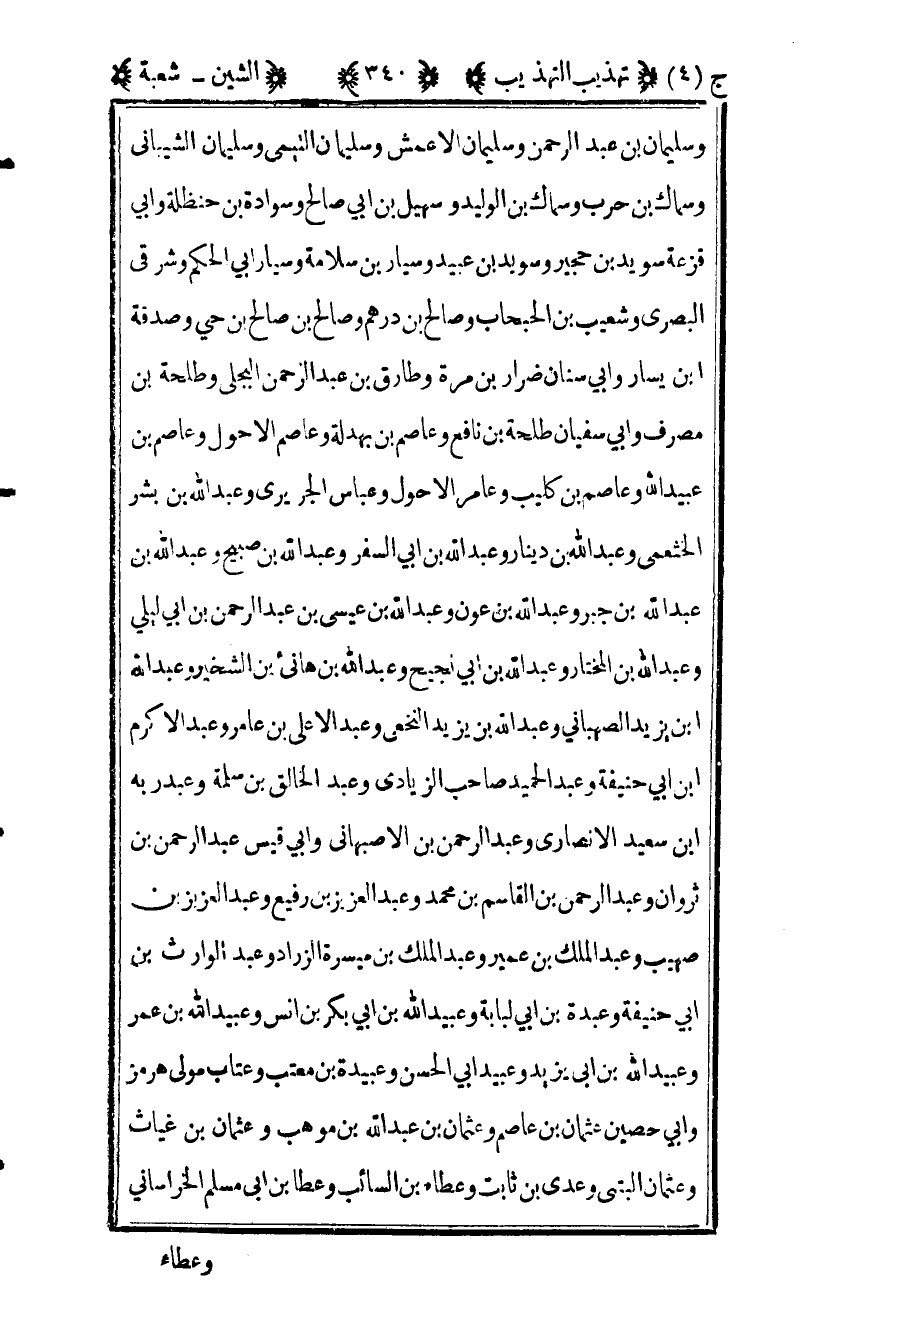 ج (٤) ﴿ تهذيب التهذيب ﴾ ﴿ ٣٤٠ ﴾ ﴿ الشين - شعبة ﴾
وسليمان بن عبد الرحمن وسليمان الاعمش وسليمان التيمى وسليمان الشيبانى
وسماك بن حرب وسماك بن الوليد وسهيل بن ابي صالح وسوادة بن حنظلة وابي
قزعة سويد بن حجير وسويد بن عبيد وسيار بن سلامة وسيار ابي الحكم وشرقى
البصرى وشعيب بن الحبحاب وصالح بن درهم وصالح بن صالح بن حي وصدقة
ابن يسار وابي سنان ضرار بن مرة وطارق بن عبد الرحمن البجلى وطلحة بن
مصرف وابي سفيان طلحة بن نافع وعاصم بن بهدلة وعاصم الاحول وعاصم بن
عبيد الله وعاصم بن كليب وعامر الاحول وعباس الجريرى وعبد الله بن بشر
الخثعمى وعبد الله بن دينار وعبد الله بن ابي السفر وعبد الله بن صبيح وعبد الله بن
عبد الله بن جبر وعبد الله بن عون وعبد الله بن عيسى بن عبد الرحمن بن ابي ليلي
وعبد الله بن المختار وعبد الله بن ابي نجيح وعبد الله بن هانئ بن الشخير وعبد الله
ابن يزيد الصهباني وعبد الله بن يزيد النخعى وعبد الاعلى بن عامر وعبد الاكرم
ابن ابي حنيفة وعبد الحميد صاحب الزيادى وعبد الخالق بن سلمة وعبد ربه
ابن سعيد الانصارى وعبد الرحمن بن الاصبهانى وابي قيس عبد الرحمن بن
ثروان وعبد الرحمن بن القاسم بن محمد وعبد العزيز بن رفيع وعبد العزيز بن
صهيب وعبد الملك بن عمير وعبد الملك بن ميسرة الزراد وعبد الوارث بن
ابي حنيفة وعبدة بن ابي لبابة وعبيد الله بن ابي بكر بن انس وعبيد الله بن عمر
وعبيد الله بن ابى يزيد وعبيد ابي الحسن وعبيدة بن معتب وعتاب مولى هرمز
وابي حصين عثمان بن عاصم وعثمان بن عبد الله بن موهب وعثمان بن غياث
وعثمان البتى وعدى بن ثابت وعطاء بن السائب وعطا بن ابى مسلم الخراساني
وعطاء